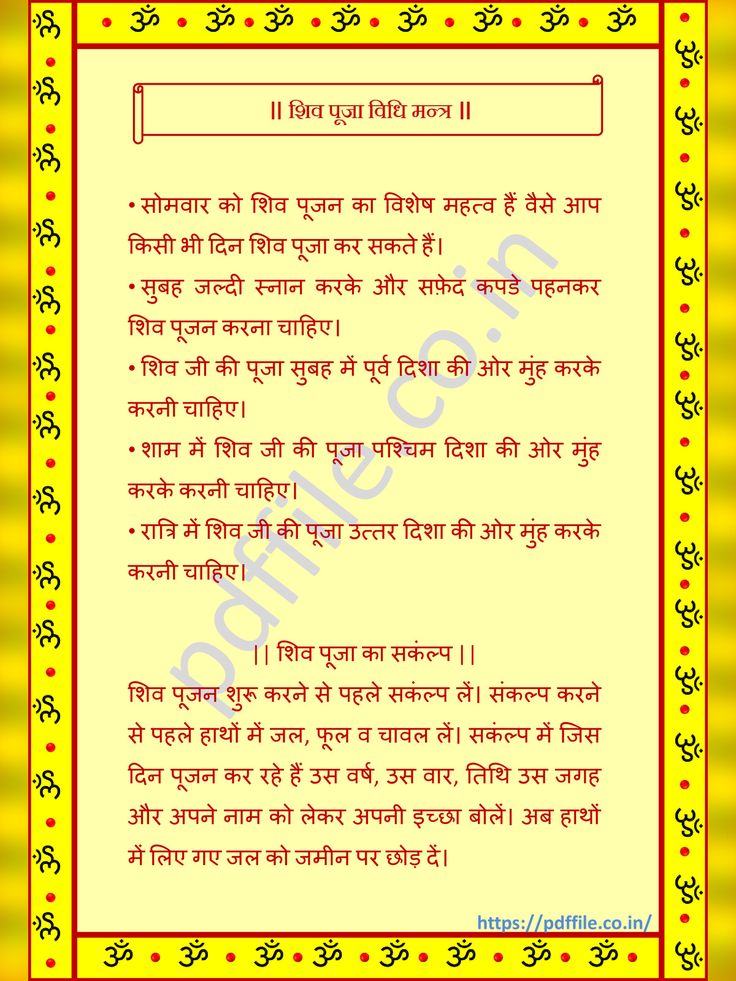 ॥ शिव पूजा विधि मन्त्र ॥
• सोमवार को शिव पूजन का विशेष महत्व हैं वैसे आप
किसी भी दिन शिव पूजा कर सकते हैं।
• सुबह जल्दी स्नान करके और सफ़ेद कपडे पहनकर
शिव पूजन करना चाहिए।
• शिव जी की पूजा सुबह में पूर्व दिशा की ओर मुंह करके
करनी चाहिए।
• शाम में शिव जी की पूजा पश्चिम दिशा की ओर मुंह
करके करनी चाहिए।
• रात्रि में शिव जी की पूजा उत्तर दिशा की ओर मुंह करके
करनी चाहिए।
|| शिव पूजा का सकंल्प ||
शिव पूजन शुरू करने से पहले सकंल्प लें। संकल्प करने
से पहले हाथों में जल, फूल व चावल लें। सकंल्प में जिस
दिन पूजन कर रहे हैं उस वर्ष, उस वार, तिथि उस जगह
और अपने नाम को लेकर अपनी इच्छा बोलें। अब हाथों
में लिए गए जल को जमीन पर छोड़ दें।
pdffile.co.in
https://pdffile.co.in/